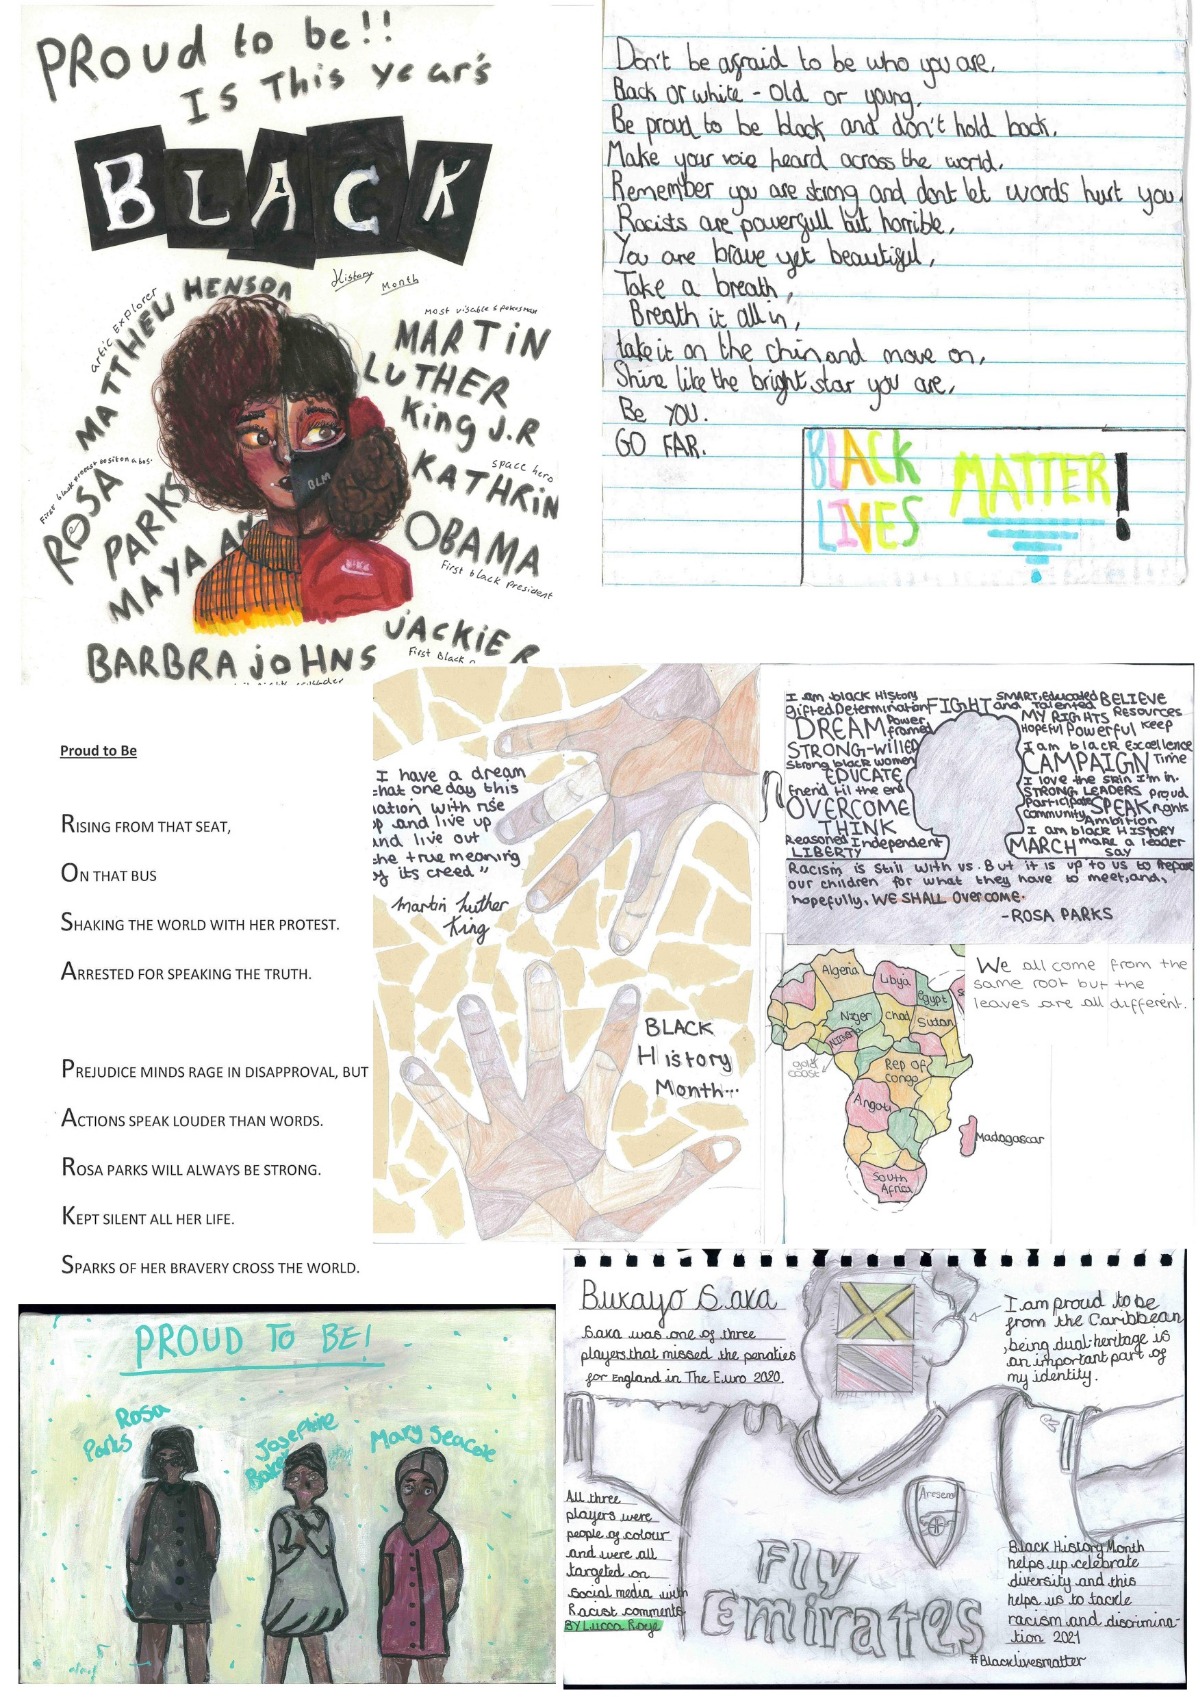 PROUD to be!!
Is This year's
BLACK
History Month
artic Explorer
MATTHEW HENSON
Most visable spokesman
MARTIN
LUTHER
King J.R
space hero
KATHRIN
OBAMA
First black president
ROSA
PARKS
MAYA AN
JACKIE R
First Black
BARBRA JOHNS
BLM
Don't be afraid to be who you are,
Back or white - old or young,
Be proud to be black and don't hold back.
Make your voie heard across the world.
Remember you are strong and dont let words hurt you.
Racists are powerfull but horrible,
You are brave yet beautiful,
Take a breath,
Breath it all in,
take it on the chin and move on,
Shine like the bright star you are,
Be YOU.
GO FAR.
BLACK
LIVES
MATTER!
Proud to Be
RISING FROM THAT SEAT,
ON THAT BUS
SHAKING THE WORLD WITH HER PROTEST.
ARRESTED FOR SPEAKING THE TRUTH.
PREJUDICE MINDS RAGE IN DISAPPROVAL, BUT
ACTIONS SPEAK LOUDER THAN WORDS.
ROSA PARKS WILL ALWAYS BE STRONG.
KEPT SILENT ALL HER LIFE.
SPARKS OF HER BRAVERY CROSS THE WORLD.
I have a dream
that one day this
nation with rise
up and live up
and live out
the true meaning
of its creed"
Martin Luther
King
BLACK
History
Month...
I am black History
Gifted Determination
FIGHT
DREAM
Power
framed
STRONG-willed
Strong black women
EDUCATE
Enend til the end
OVERCOME
THINK
Reasoned Independent
LIBERTY
SMART, Educated BELIEVE
and Talented
MY RIGHTS Resources
Hopeful Powerful keep
I am black Excellence
CAMPAIGN Time
I love the skin I'm in.
STRONG LEADERS Proud
Participate SPEAK rights
community Ambition
I am black HISTORY
MARCH make a leader
say
Racism is still with us. But it is up to us to Prepare
our children for what they have to meet, and,
hopefully, WE SHALL overcome.
-ROSA PARKS
Algeria
Libya
Egypt
Niger
Chad
Sudan
Nigeria
gold
coast
Rep of
Congo
Angola
Madagascar
South
Africa
We all come from the
same root but the
leaves are all different.
PROUD TO BE!
Rosa
Parks
Josephine
Baker
Mary Seacole
Bukayo Saka
Saka was one of three
players that missed the penaties
for England in The Euro 2020.
I am proud to be
from the Caribbean,
being dual heritage is
an important part of
my identity.
All three
players were
people of colour
and were all
targeted on
social media with
Racist comments
BY Lucca Raye
Arsenal
Fly
Emirates
Black History Month
helps up celebrate
diversity and this
helps us to tackle
racism and discrimina-
tion 2021
#Blacklivesmatter